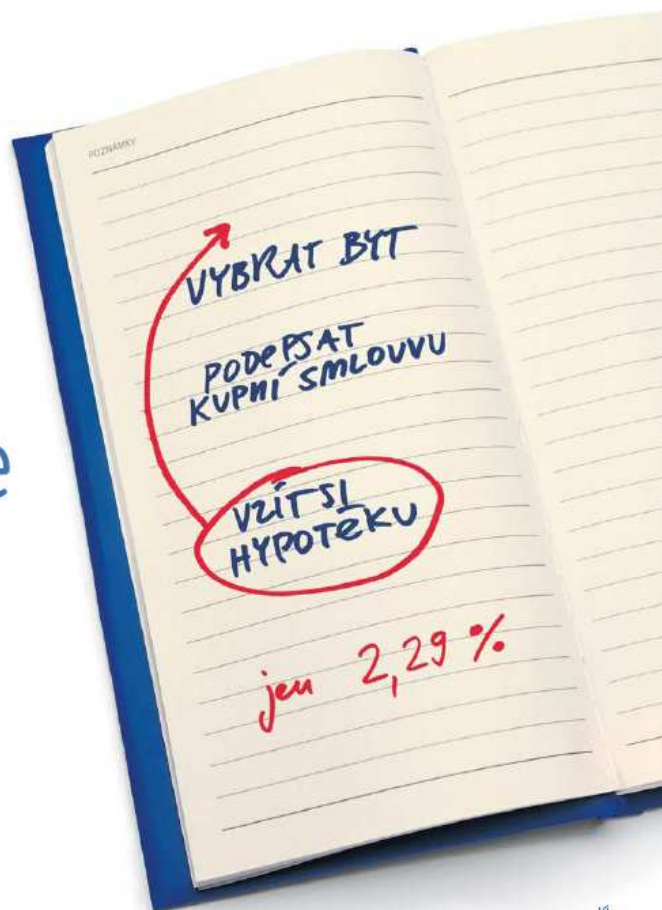 POZNÁMKY
VYBRAT BYT
PODEPSAT
KUPNÍ SMLOUVU
VZÍT SI
HYPOTÉKU
jen 2,29 %